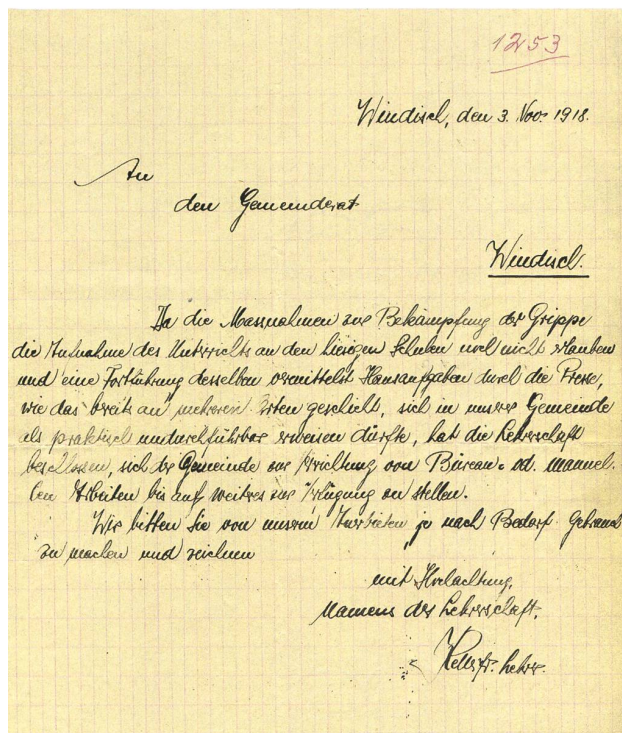 1253
Windisch, den 3. Nov. 1918.
An
den Gemeinderat
Windisch.
Da die Massnahmen zur Bekämpfung der Grippe
die Aufnahme des Unterrichts an den hiesigen Schulen noch nicht erlauben
und eine Fortführung desselben vermittelst Hausaufgaben durch die Presse,
wie das bereits an mehreren Orten geschieht, sich in unserer Gemeinde
als praktisch undurchführbar erweisen dürfte, hat die Lehrerschaft
beschlossen, sich der Gemeinde zur Verrichtung von Bureau- od. manuel-
len Arbeiten bis auf weiteres zur Verfügung zu stellen.
Wir bitten Sie von unserm Anerbieten je nach Bedarf Gebrauch
zu machen und zeichnen
mit Hochachtung,
Namens der Lehrerschaft,
Lehrer.